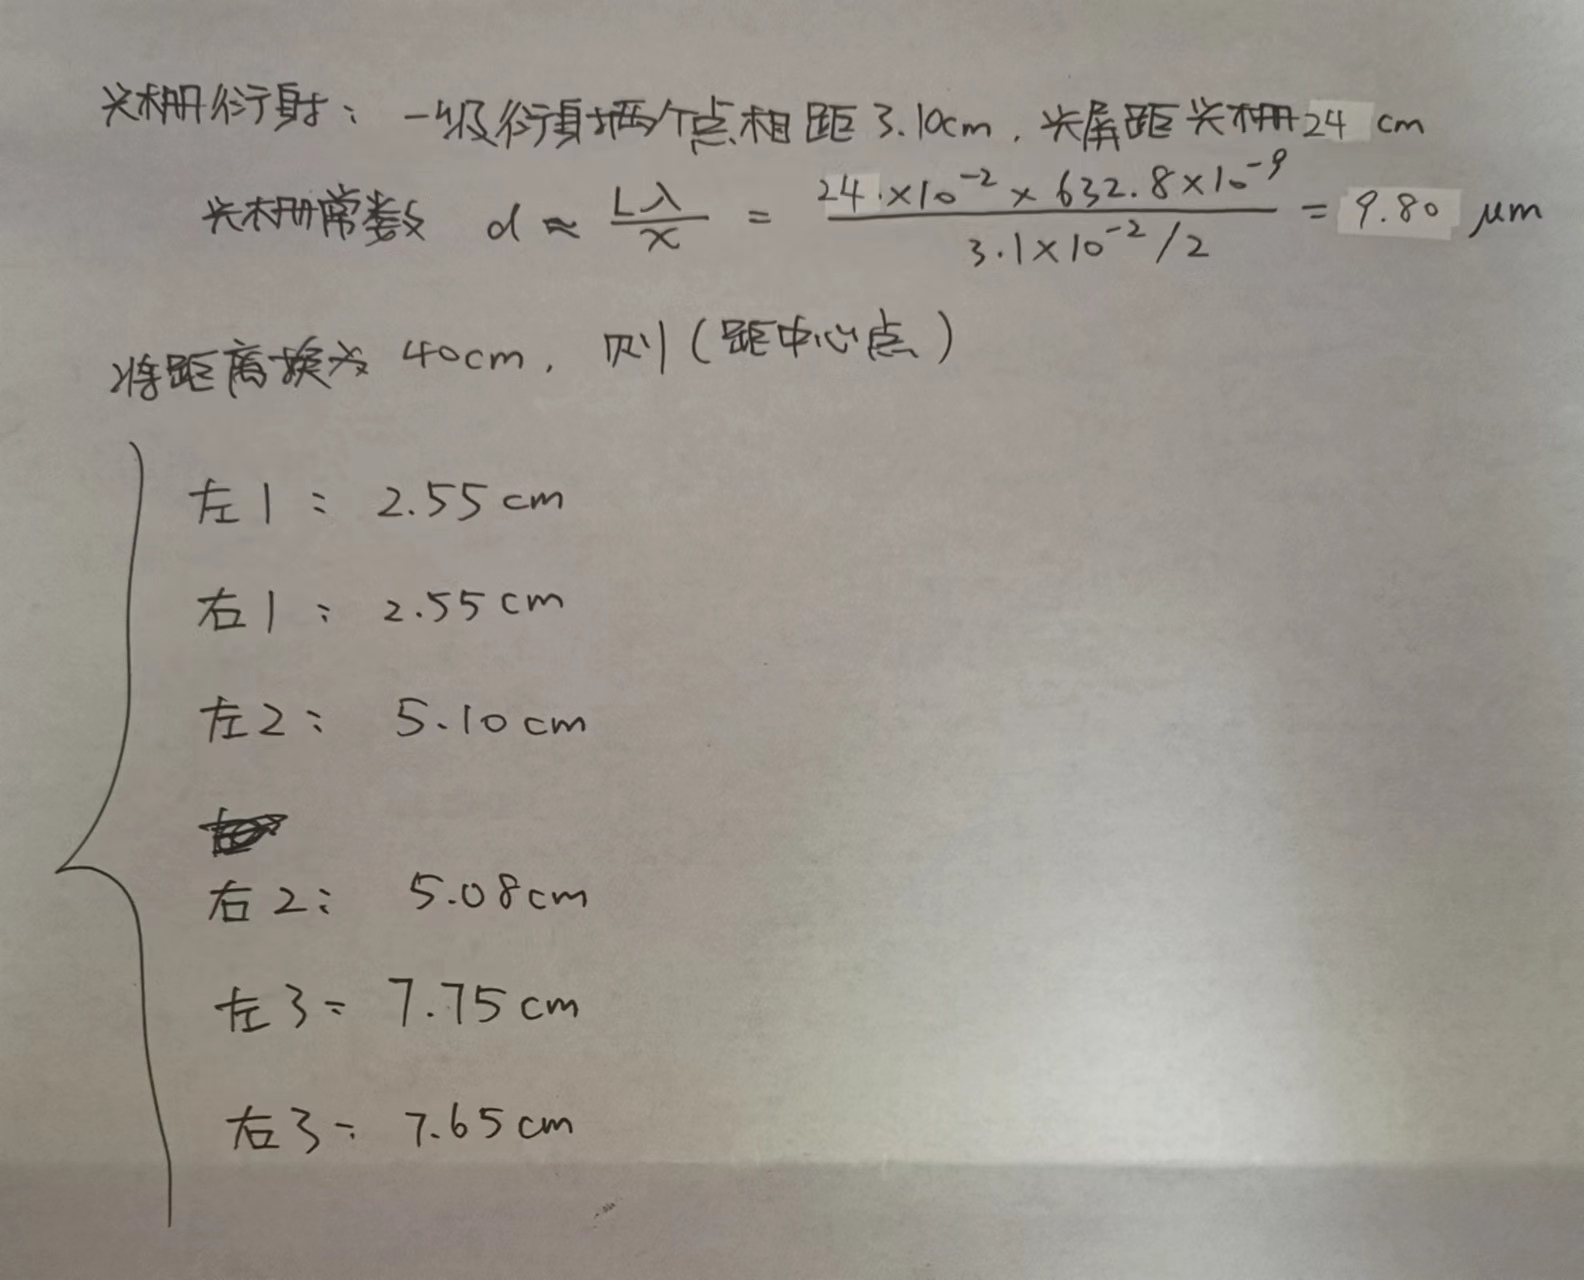 光栅衍射：一级衍射两个点相距3.10cm，光屏距光栅24 cm
光栅常数 d ≈ Lλ/x = 24×10⁻² × 632.8×10⁻⁹ / 3.1×10⁻²/2 = 9.80 μm
将距离换为 40cm，则（距中心点）
左1：2.55cm
右1：2.55cm
左2：5.10cm
右2：5.08cm
左3：7.75cm
右3：7.65cm